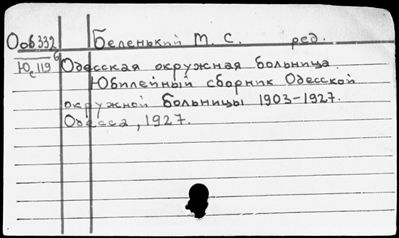 Оов332 Беленький М. С. ред.
Юс119б Одесская окружная больница.
Юбилейный сборник Одесской
окружной больницы 1903-1927.
Одесса, 1927.